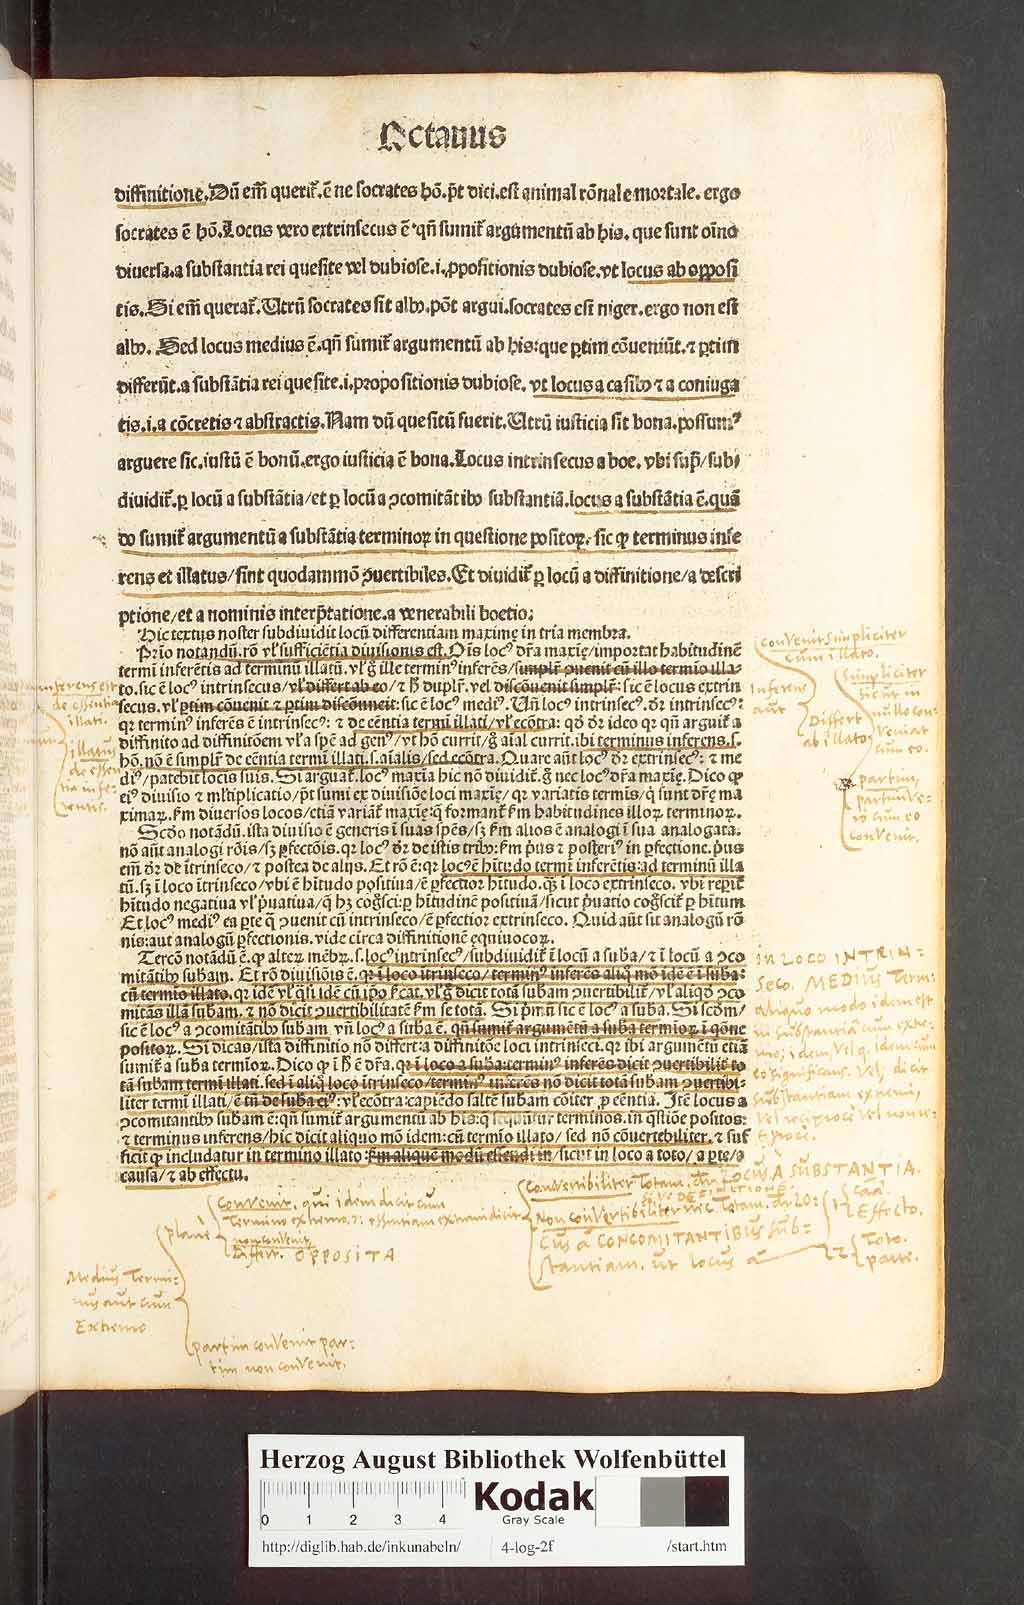 Octauus
diffinitione. Dū em̄ querit̄. ē ne socrates hō. p̄t dici. est animal rōnale mortale. ergo
socrates ē hō. Locus vero extrinsecus ē qn̄ sumit̄ argumentū ab his. que sunt oīno
diuersa. a substantia rei quesite vel dubiose. i. ꝓpositionis dubiose. vt locus ab opposi
tis. Si em̄ querat̄. Utrū socrates sit albꝰ. pōt argui. socrates est niger. ergo non est
albꝰ. Sed locus medius ē. qn̄ sumit̄ argumentū ab his: que ꝑtim cōueniūt. ⁊ ꝑtim
differūt. a substātia rei quesite. i. propositionis dubiose. vt locus a casibꝰ ⁊ a coniuga
tis. i. a cōcretis ⁊ abstractis. Nam dū quesitū fuerit. Utrū iusticia sit bona. possumꝰ
arguere sic. iustū ē bonū. ergo iusticia ē bona. Locus intrinsecus a boe. vbi sup̄ / subi
diuidit̄. ꝑ locū a substātia / et ꝑ locū a ꝯcomitātibꝰ substantiā. locus a substātia ē. quā
do sumit̄ argumentū a substātia terminoꝝ in questione positoꝝ. sic ꝙ terminus infe
rens et illatus / sint quodammō ꝯuertibiles. Et diuidit̄ ꝑ locū a diffinitione / a descri
ptione / et a nominis interp̄tatione. a venerabili boetio:
Hic textus noster subdiuidit locū differentiam maxime in tria membra.
Prīo notandū. rō vl̓ sufficiētia diuisionis est. Oīs locꝰ dr̄a maxīe / importat habitudinē
termī inferētis ad terminū illatū. vl̓ g̊ ille terminꝰ inferēs / simplr̄ ꝯuenit cū illo termīo illa
to. sic ē locꝰ intrinsecus / vl̓ differt ab eo / ⁊ h̄ duplr̄. vel discōuenit simplr̄: sic ē locus extrin
secus. vl̓ ꝑtim cōuenit ⁊ ꝑtim discōuenit: sic ē locꝰ mediꝰ. Un̄ locꝰ intrinsecꝰ. dr̄ intrinsecꝰ:
qꝛ terminꝰ inferēs ē intrinsecꝰ: ⁊ de cēntia termī illati / vl̓ ecōtra: qd̓ dr̄ ideo qꝛ qn̄ arguit̄ a
diffinito ad diffinitōem vl̓ a spē ad genꝰ / vt hō currit / g̊ aīal currit. ibi terminus inferens. s.
hō. nō ē simplr̄ de cēntia termī illati. s. aīalis / sed ecōtra. Quare aūt locꝰ dr̄ extrinsecꝰ: ⁊ me
diꝰ / patebit locis suis. Si arguat̄. locꝰ maxīa hic nō diuidit̄. g̊ nec locꝰ dr̄a maxīe. Dico ꝙ
eiꝰ diuisio ⁊ ml̓tiplicatio / p̄t sumi ex diuisiōe loci maxīe / qꝛ variatis termīs / q̊ sunt dr̄e ma
ximaꝝ. fm diuersos locos / etiā variat̄ maxīe: q̊ formant̄ fm habitudines illoꝝ terminoꝝ.
Scd̓o notādū. ista diuisio ē generis ī suas spēs / sꝫ fm alios ē analogi ī sua analogata.
nō aūt analogi rōis / sꝫ ꝑfectōis. qꝛ locꝰ dr̄ de istis tribꝰ. fm p̓us ⁊ posteriꝰ in ꝑfectione. p̓us
em̄ dr̄ de ītrinseco / ⁊ postea de alijs. Et rō ē: qꝛ locꝰ ē hītudo termī inferētis: ad terminū illa
tū. sꝫ ī loco ītrinseco / vbi ē hītudo positiua / ē ꝑfectior hītudo. ꝗ̄ ī loco extrinseco. vbi reperit̄
hītudo negatiua vl̓ p̓uatiua / q̊ hꝫ cōgsci: ꝑ hītudinē positiuā / sicut p̓uatio cogscit̄ ꝑ hītum
Et locꝰ mediꝰ ea ꝑte q̊ ꝯuenit cū intrinseco / ē ꝑfectior extrinseco. Quid aūt sit analogū rō
nis: aut analogū ꝑfectionis. vide circa diffinitionē equiuocoꝝ.
Tercō notādū ē. ꝙ alteꝝ mēbꝝ. s. locꝰ intrinsecꝰ / subdiuidit̄ ī locū a suba / ⁊ ī locū a ꝯco
mitātibꝰ subam. Et rō diuisiōis ē. qꝛ ī loco ītrinseco / terminꝰ inferēs aliq̊ mō idē ē ī suba:
cū termīo illato. qꝛ idē vl̓ q̄si idē cū ip̄o sīcat. vl̓ g̊ dicit totā subam ꝯuertibilit̄ / vl̓ aliqd̓ ꝯco
mitās illā subam. ⁊ nō dicit ꝯuertibilitatē fm se totā. Si pm̄ sic ē locꝰ a suba. Si scd̓m /
sic ē locꝰ a ꝯcomitātibꝰ subam. vn̄ locꝰ a suba ē. qn̄ sumit̄ argumētū a suba termioꝝ ī q̄one
positoꝝ. Si dicas / ista diffinitio nō differt: a diffinitōe loci intrinseci. qꝛ ibi argumētū etiā
sumit̄ a suba termioꝝ. Dico ꝙ ī h̄ ē dr̄a. qꝛ ī loco a suba: terminꝰ inferēs dicit ꝯuertibilit̄ to
tā subam termī illati. sed ī aliq̊ loco ītrinseco / terminꝰ inferēs nō dicit totā subam ꝯuertibi
liter termī illati / ē tn̄ de suba eiꝰ: vl̓ ecōtra: capiēdo saltē subam cōiter ꝓ cēntia. Itē locus a
ꝯcomitantibꝰ subam ē: qn̄ sumit̄ argumentū ab his: q̊ sequunt̄ terminos. in q̄stiōe positos:
⁊ terminus inferens / hic dicit aliquo mō idem: cū termīo illato / sed nō cōuertebiliter. ⁊ suf
ficit ꝙ includatur in termino illato: fm aliquē modū essendi in / sicut in loco a toto / a ꝑte / a
causa / ⁊ ab effectu.
convenit simpliciter
cum illato.
Inferens
aut
Differt
ab illato
simpliciter
sic ut in
nullo con-
veniat
cum eo.
partim,
partim ve-
ro cum eo
convenit.
inferens est
de essentia
illati.
illatus
de essen
tia infe-
rentis.
in LOCO INTRIN=
Seco. MEDIUS Term:
aliquo modo idem est
in substantia cum extre-
mo; idem vel q. idem cum
eo significans. Vel; dicit
substantiam extremi,
vel reciproce vel non re-
ciproce.
plane
Convenit, qui idem dicit cum
Termino extremo.
non convenit
Differt. OPPOSITA
Convertibiliter Totam. dr̄ LOCUS A SUBSTANTIA.
sive DEFINITIONE
Non convertibiliter nec Totam. dr̄ LO=
CUS A CONCOMITANTIBUS Sub=
stantiam. ut locus a
1 Caā.
Effecto.
2 Toto.
parte.
Medius Termi-
nus aut cum
Extremo
partim convenit par=
tim non convenit.
Herzog August Bibliothek Wolfenbüttel
0 1 2 3 4
Kodak
Gray Scale
http://diglib.hab.de/inkunabeln/ 4-log-2f /start.htm